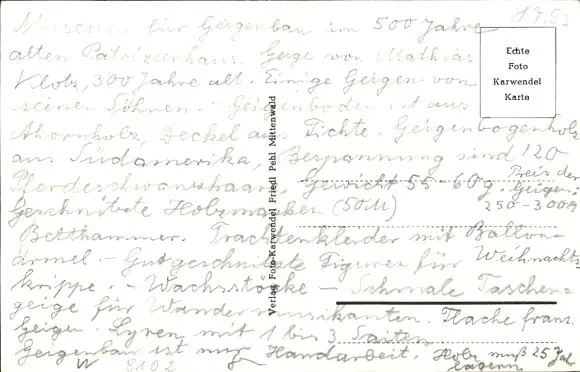 Museum für Geigenbau im 500 Jahre
alten Patrizierhaus. Geige von Mathias
Klotz, 300 Jahre alt. Einige Geigen von
seinen Söhnen. - Geigenboden ist aus
Ahornholz, Deckel aus Fichte. Geigenbogenholz
aus Südamerika, Bespannung sind 120
Pferdeschwanzhaare, Gewicht 55-60g.
Preis der
Geigen:
250-300
Geschnitzte Holzmasken (50M)
Betthammer. Trachtenkleider mit Ballon-
ärmel - Gutgeschnitzte Figuren für Weihnachts
krippe. - Wachsstöcke - Schmale Taschen-
geige für Wandermusikanten. Flache franz.
Geigen. Lyren mit 1 bis 3 Saiten
Geigenbau ist nur Handarbeit. Holz muß 25 Jahr
lagern
W 8102
Echte
Foto
Karwendel
Karte
Verlag Foto-Karwendel Friedl Pehl Mittenwald